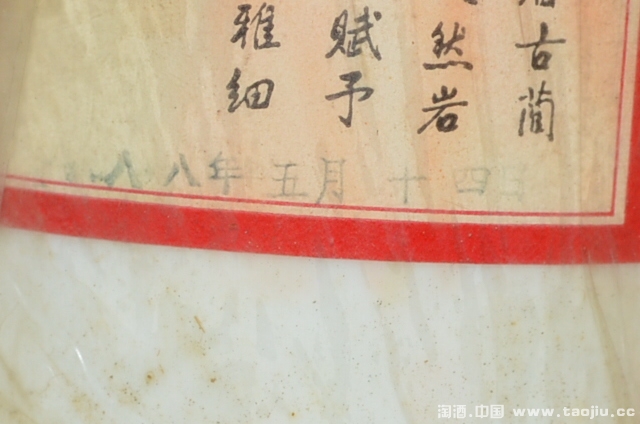 古蔺
然岩
赋予
雅细
八八年五月十四日
淘酒.中国 www.taojiu.cc